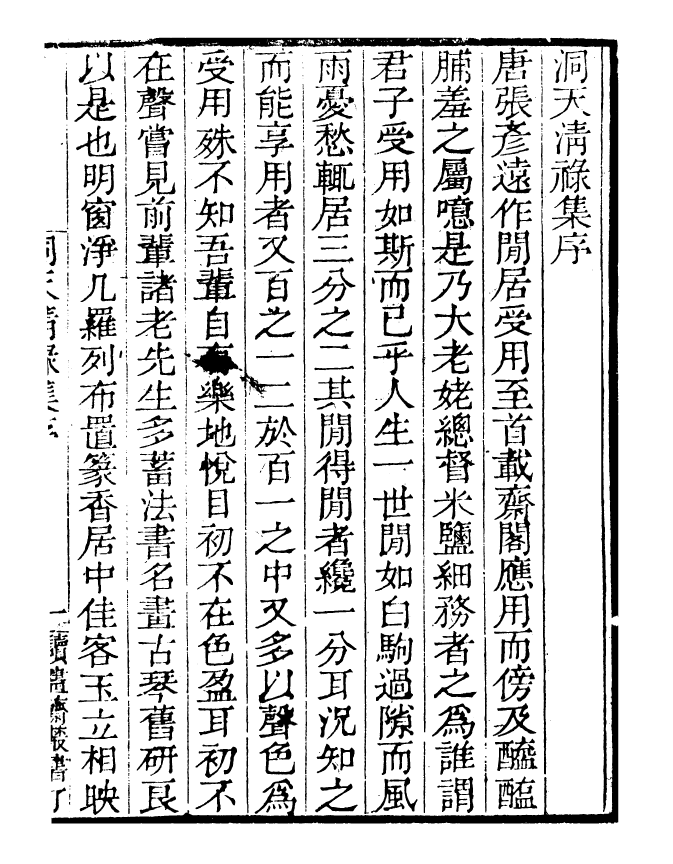 洞天清祿集序
唐張彥遠作閒居受用至首載齋閣應用而傍及醯醢
脯羞之屬噫是乃大老姥總督米鹽細務者之爲誰謂
君子受用如斯而已乎人生一世閒如白駒過隙而風
雨憂愁輒居三分之二其閒得閒者纔一分耳況知之
而能享用者又百之一二於百一之中又多以聲色爲
受用殊不知吾輩自有樂地悅目初不在色盈耳初不
在聲嘗見前輩諸老先生多蓄法書名畫古琴舊研良
以是也明窗淨几羅列布置篆香居中佳客玉立相映
洞天清祿集序
一
讀畫齋叢書